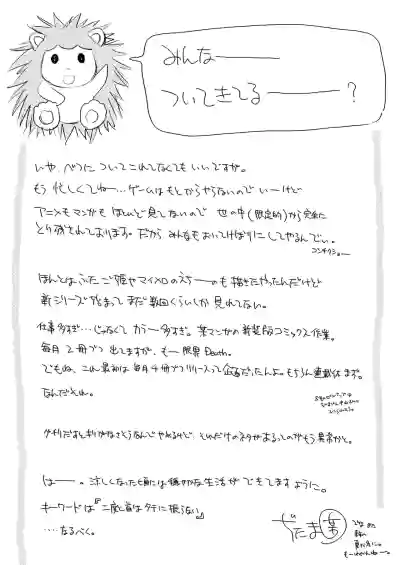 みんな———
ついてきてる———?
いや、べつについてこれてなくてもいいですが。
もう忙しくてねー…ゲームはもとからやらないのでいーけど
アニメもマンガもほとんど見てないので 世の中(限定的)から完全に
とり残されております。だからみんなもおいてけぼりにしてやるんでい。
コンチクショー
ほんとはふたご姫やマイメロのえち——のも描きたかったんだけど
新シリーズ始まってまだ数回くらいしか見れてない。
仕事多すぎ…じゃなくて カラー多すぎ。某マンガの新装版コミックス作業。
毎月2冊づつ出てますが、もー限界Death。
でもね、これ最初は毎月4冊づつリリースって企画だったんよ。もちろん連載休まず。
なんだそれ。
は——。涼しくなった頃には穏やかな生活ができてますように。
キーワードは『二度と首はタテに振らない』
……なるべく。
ぢたま(某)
ではまた